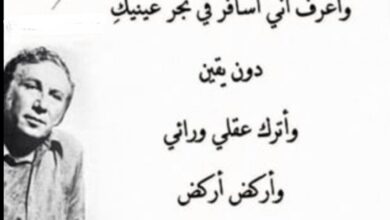 وأعرف أني أسافر في بحر عينيكِ
دون يقين
وأترك عقلي ورائي
وأركض أركض